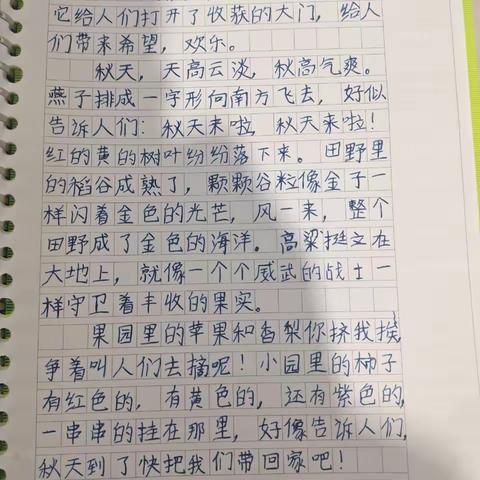 它给人们打开了收获的大门，给人
们带来希望，欢乐。
秋天，天高云淡，秋高气爽。
燕子排成一字形向南方飞去，好似
告诉人们：秋天来啦，秋天来啦！
红的黄的树叶纷纷落下来。田野里
的稻谷成熟了，颗颗谷粒像金子一
样闪着金色的光芒，风一来，整个
田野成了金色的海洋。高粱挺立在
大地上，就像一个个威武的战士一
样守卫着丰收的果实。
果园里的苹果和香梨你挤我挨，
争着叫人们去摘呢！小园里的柿子
有红色的，有黄色的，还有紫色的，
一串串的挂在那里，好像告诉人们，
秋天到了快把我们带回家吧！